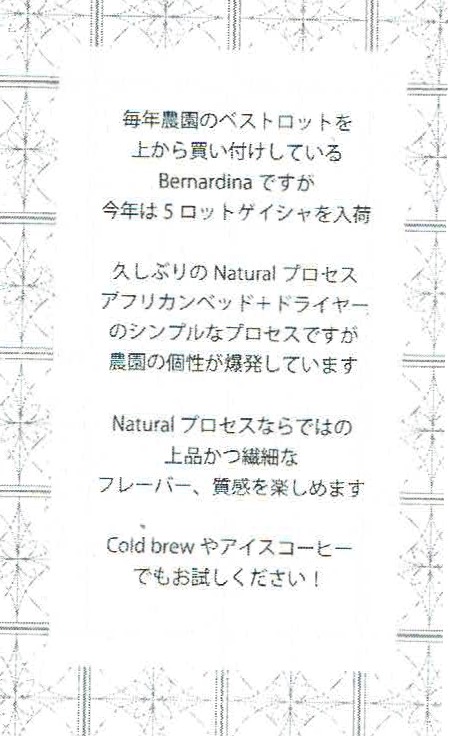 毎年農園のベストロットを
上から買い付けしている
Bernardina ですが
今年は 5 ロットゲイシャを入荷
久しぶりの Natural プロセス
アフリカンベッド＋ドライヤー
のシンプルなプロセスですが
農園の個性が爆発しています
Natural プロセスならではの
上品かつ繊細な
フレーバー、質感を楽しめます
Cold brew やアイスコーヒー
でもお試しください！